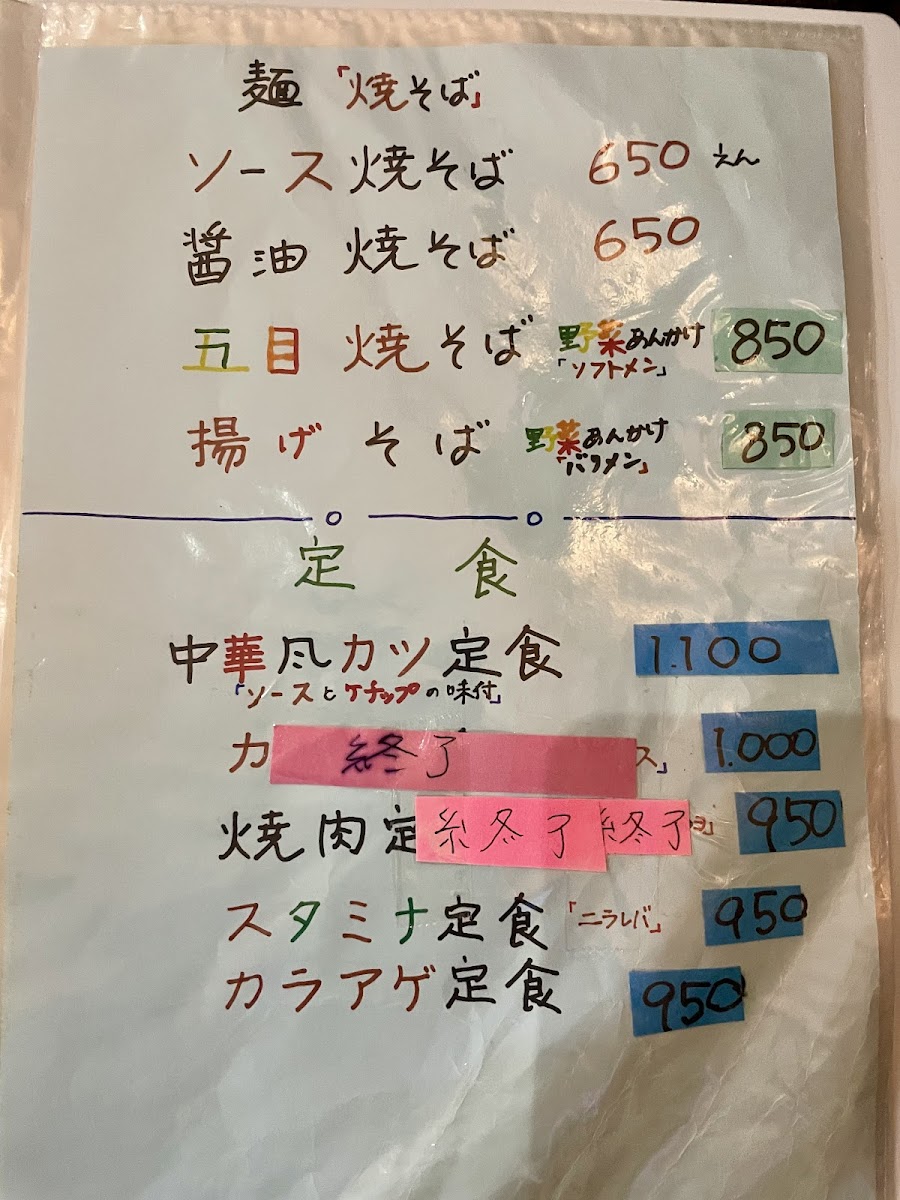 麺 「焼そば」
ソース焼そば 650 えん
醤油 焼そば 650
五目 焼そば 野菜あんかけ 850
「ソフトメン」
揚げそば 野菜あんかけ 850
「バリメン」
定食
中華風カツ定食 1.100
「ソースとケチップの味付」
カ 終了 ス」 1.000
焼肉定 終了 終了 」 950
スタミナ定食 「ニラレバ」 950
カラアゲ定食 950